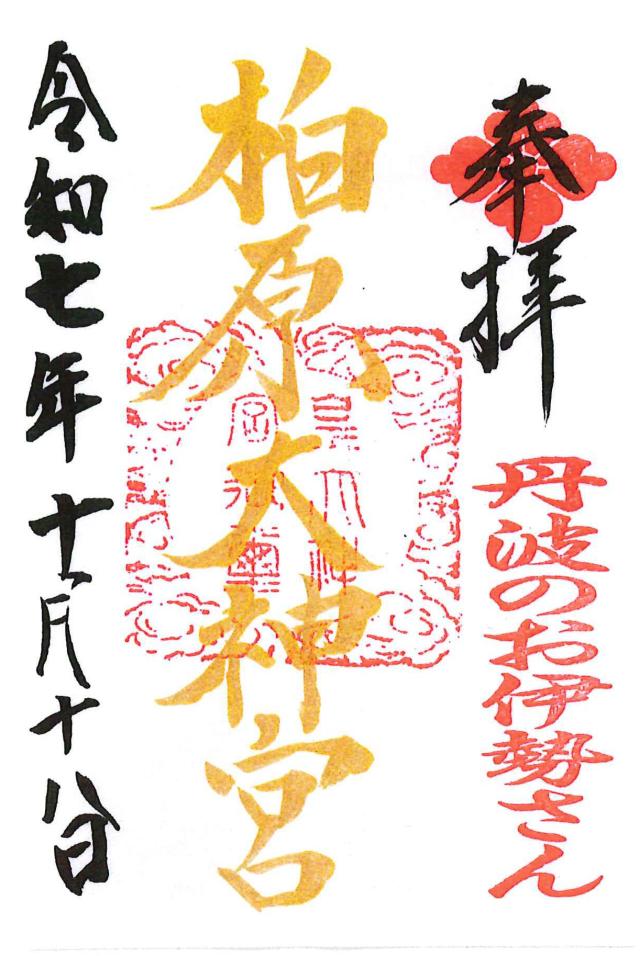 奉拝
丹波のお伊勢さん
柏原大神宮
令和七年十一月十八日